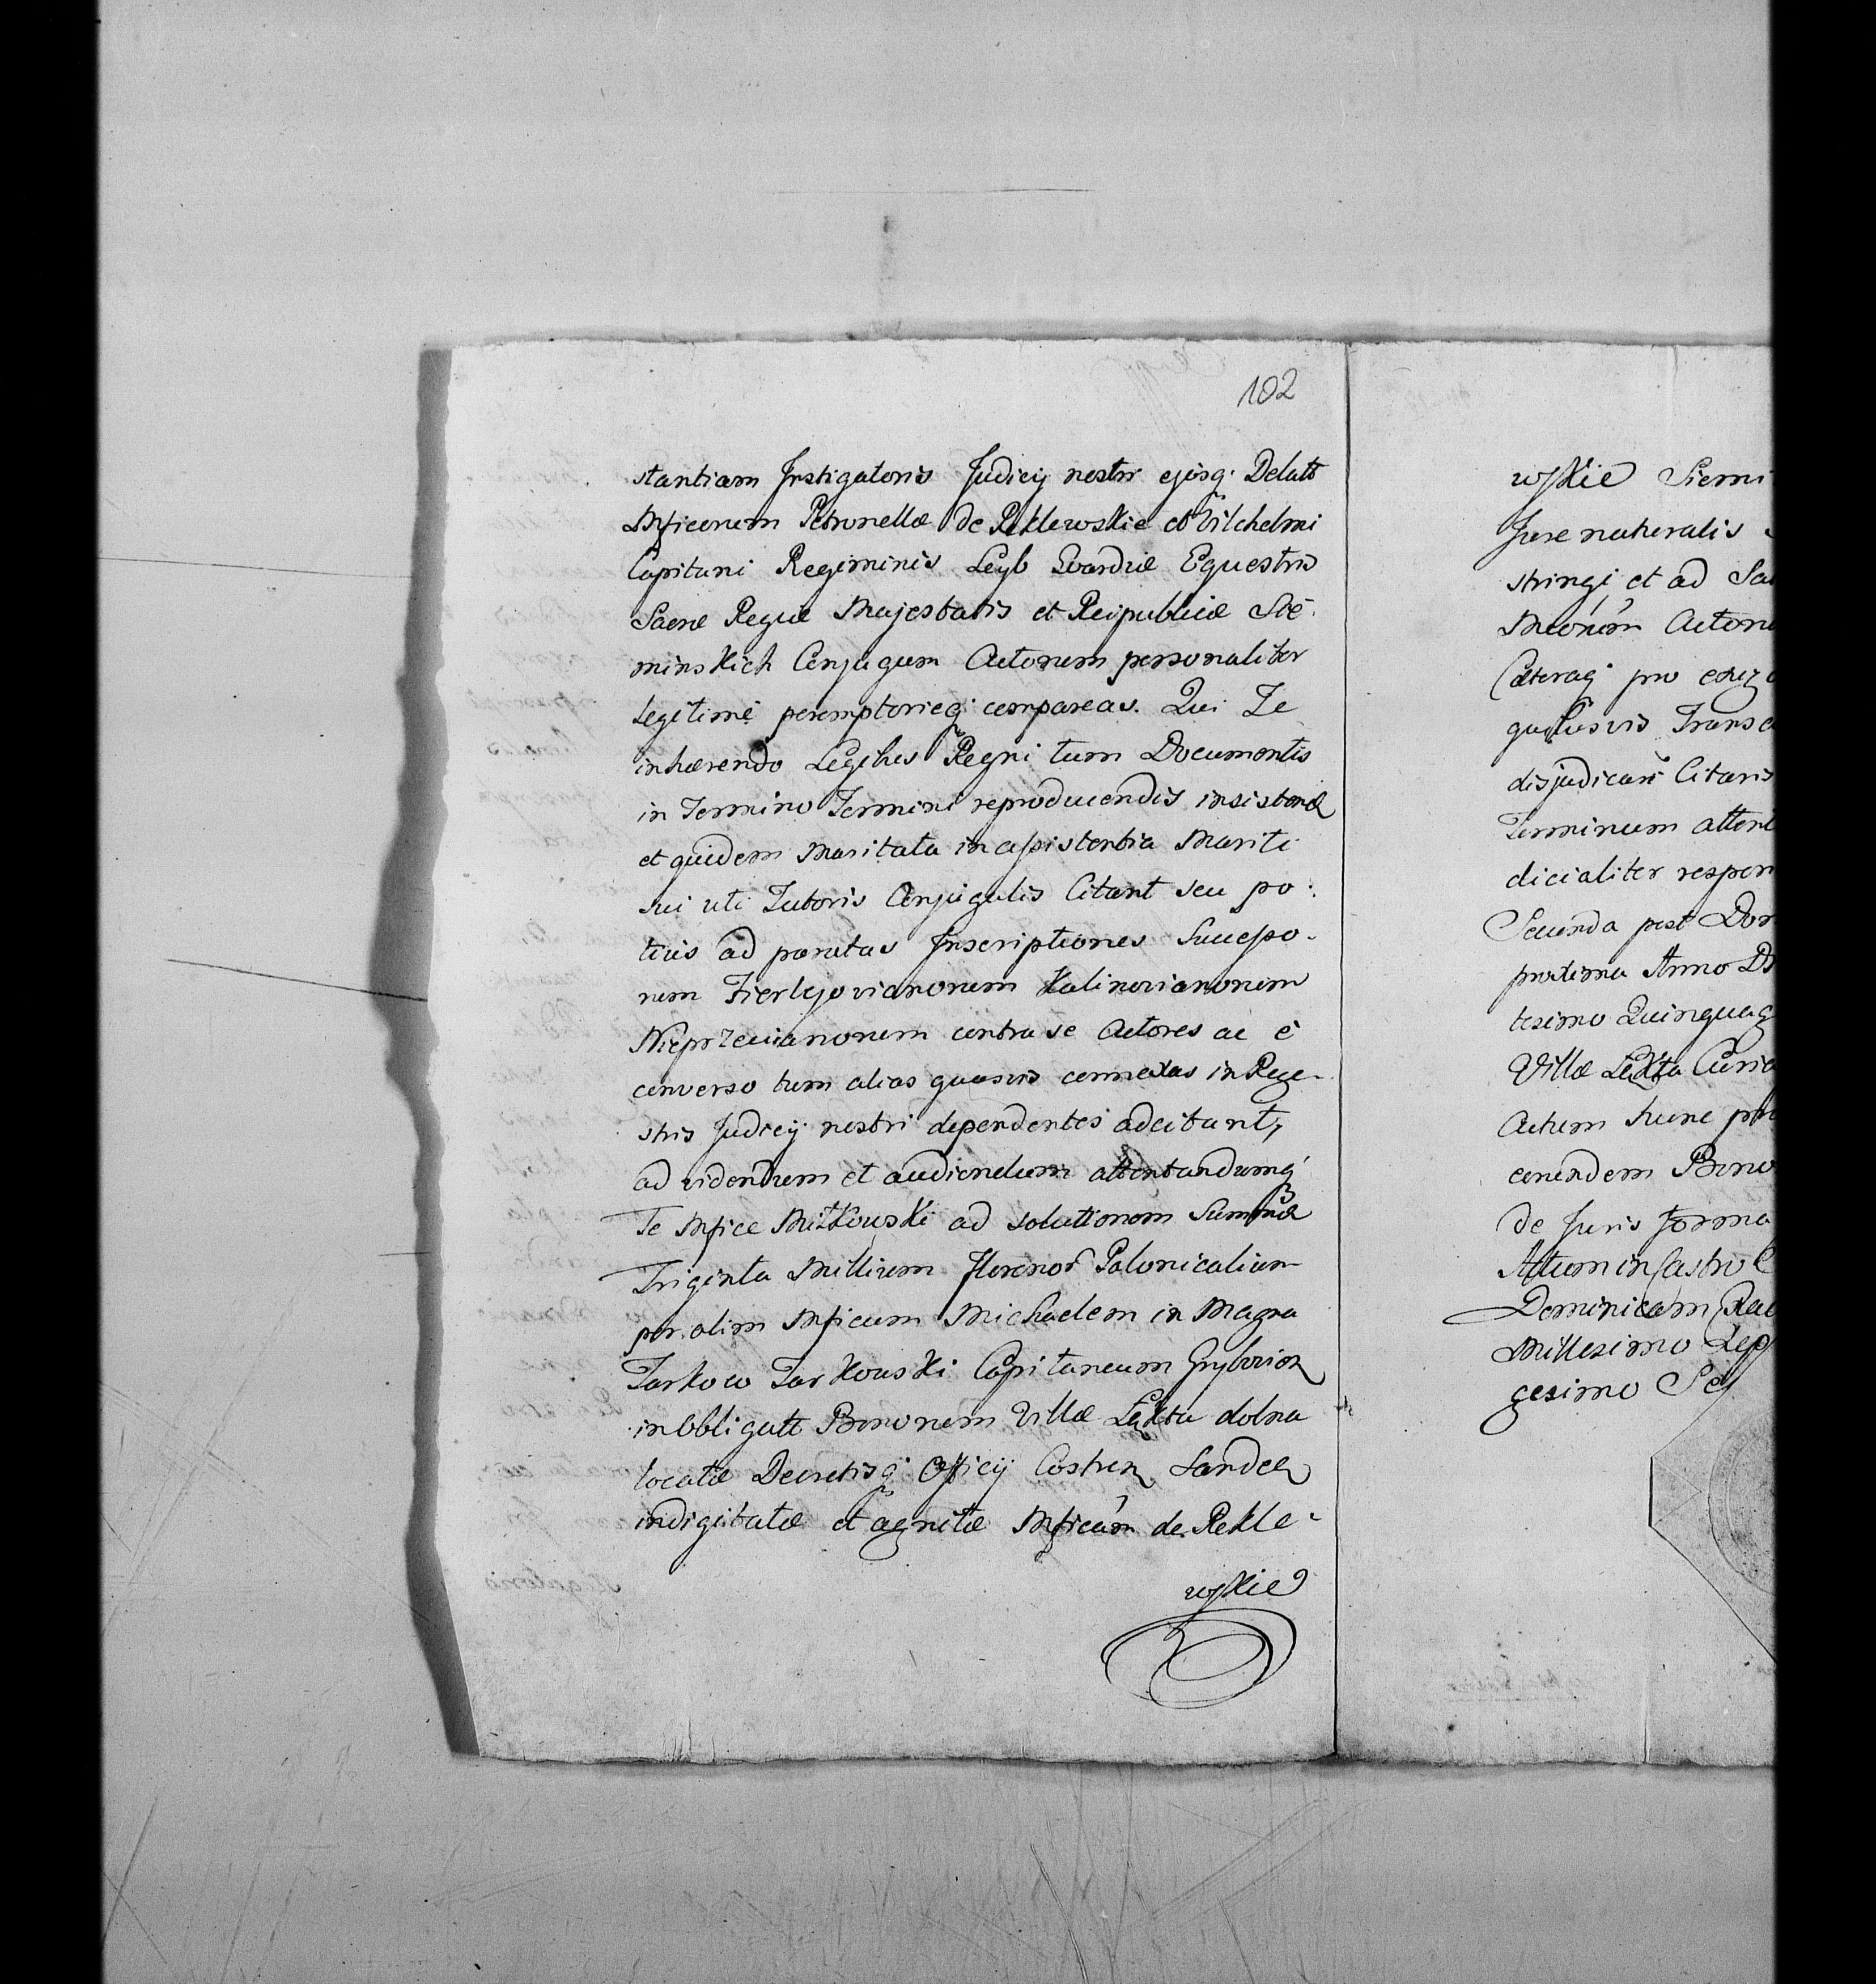 102
stantiam Instigatoris Judicij nostri ejusq. Delatt
Mficorum Petronellæ de Peklewskie et Vilchelmi
Capitani Regiminis Leyb Gvardiæ Equestris
Sacræ Regiæ Majestatis et Reipublicæ Sie
minskich Conjugum Actorum personaliter
legitime peremptorieq. compareas. Qui Te
inhærendo Legibus Regni tum Documentis
in Termino Termini reproducendis insistend
et quidem Maritata in assistentia Mariti
sui uti Tutoris Conjugalis Citant seu po:
tius ad paratas Inscriptiones Successo.
rum Fierlejovianorum Kalinovianorum
Nieprzecianorum contra se Actores ac è
converso tum alias quasvis connexas in Rege
stris Judicij nostri dependentes adcitant,
ad videndum et audiendum attentandumq
Te Mfice Mitkowski ad solutionem Summæ
Triginta Millium florenor Polonicalium
per olim Mficum Michaelem in Magna
Tarkowo Tarkowski Capitaneum Grybovien
in obligatt Bonorum Villæ Łękta dolna
locatæ Decretisq Officij Castren Sandec
indigitatæ et agnitæ Mficam de Pekle-
wskie
wskie Siemi
Jure naturalis
stringi, et ad Sa
Meorum Actor
Cæteraq pro exig
quibusvis Transa
disjudicari Citaris
Terminum attent
dicialiter respon
Secunda post Dom
proxima Anno D
tesimo Quinquag
Villæ Łękta Curia
Actum hunc pr
eorundem Bono
de Juris forma
Actum in Castro C
Dominicam Ra
Millesimo Sep
gesimo Se